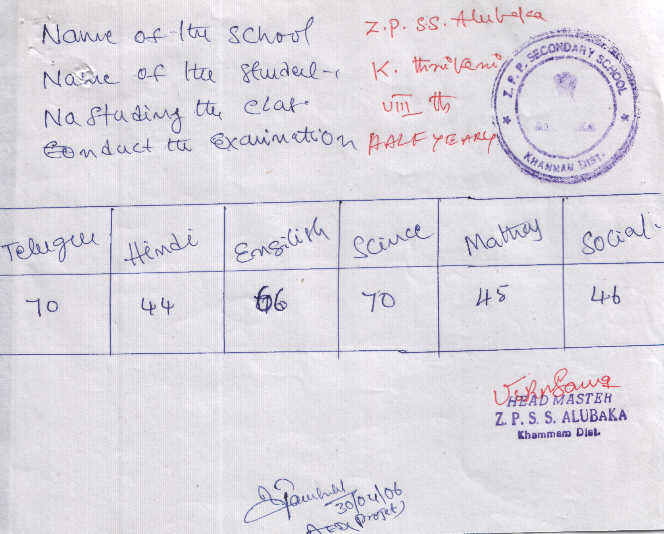 Name of the school Z.P.SS. Alubaka
Name of the student K. thriveni
Na Studing the clas VIII th
Conduct the Examination HALF YEARLY
Z.P.P. SECONDARY SCHOOL
KHAMMAM DIST.
Telugu Hindi Engilish Scince Maths Social.
70 44 66 70 45 46
HEAD MASTER
Z. P. S. S. ALUBAKA
Khammam Dist.
30/04/06
(Projet)